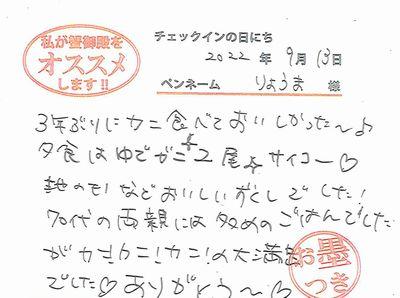 私が蟹御殿を
オススメ
します!!
チェックインの日にち
2022年9月13日
ペンネーム りょうま 様
3年ぶりにカニ食べておいしかった〜♪
夕食はゆでガニ2尾サイコー♡
地のモノなどおいしいものづくしでした!
70代の両親には多めのごはんでした
がカニ!カニ!カニ!の大満足
でした♡ありがとう〜♡
お墨
つき